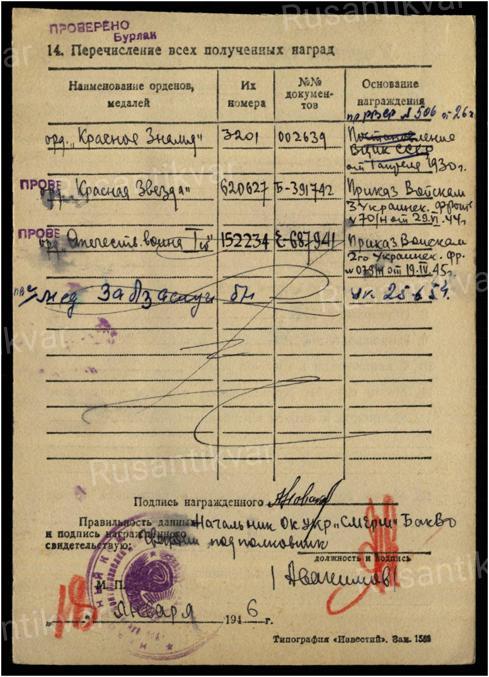 ПРОВЕРЕНО
Бурлак
14. Перечисление всех полученных наград
Наименование орденов, медалей
Их номера
№№ документов
Основание награждения
пр. РВСР № 506 от 26г.
орд. "Красное Знамя" 3201 002639 Постановление
ВЦИК СССР
от 7 апреля 1930г.
ПРОВЕ
орд. "Красная Звезда" 620627 Б-391742 Приказ Войскам
3 Украинск. фронта
№ 70/Н от 29.VI.44г.
ПРОВЕ
орд. Отечеств. война I ст 152234 Е-687941 Приказ Войскам
2го Украинск. фр.
№ 073/Н от 19.IV.45г.
мед За Б/заслуги б/н Ук 25.6.54.
Подпись награжденного
Правильность данных Начальник Окр "Смерш" БакВО
и подпись награжденного
свидетельствую: Гвардии подполковник
должность и подпись
/Авакимов/
М. П.
18 Января 1946 г.
Типография «Известий». Зак. 1559
Rusantikvar